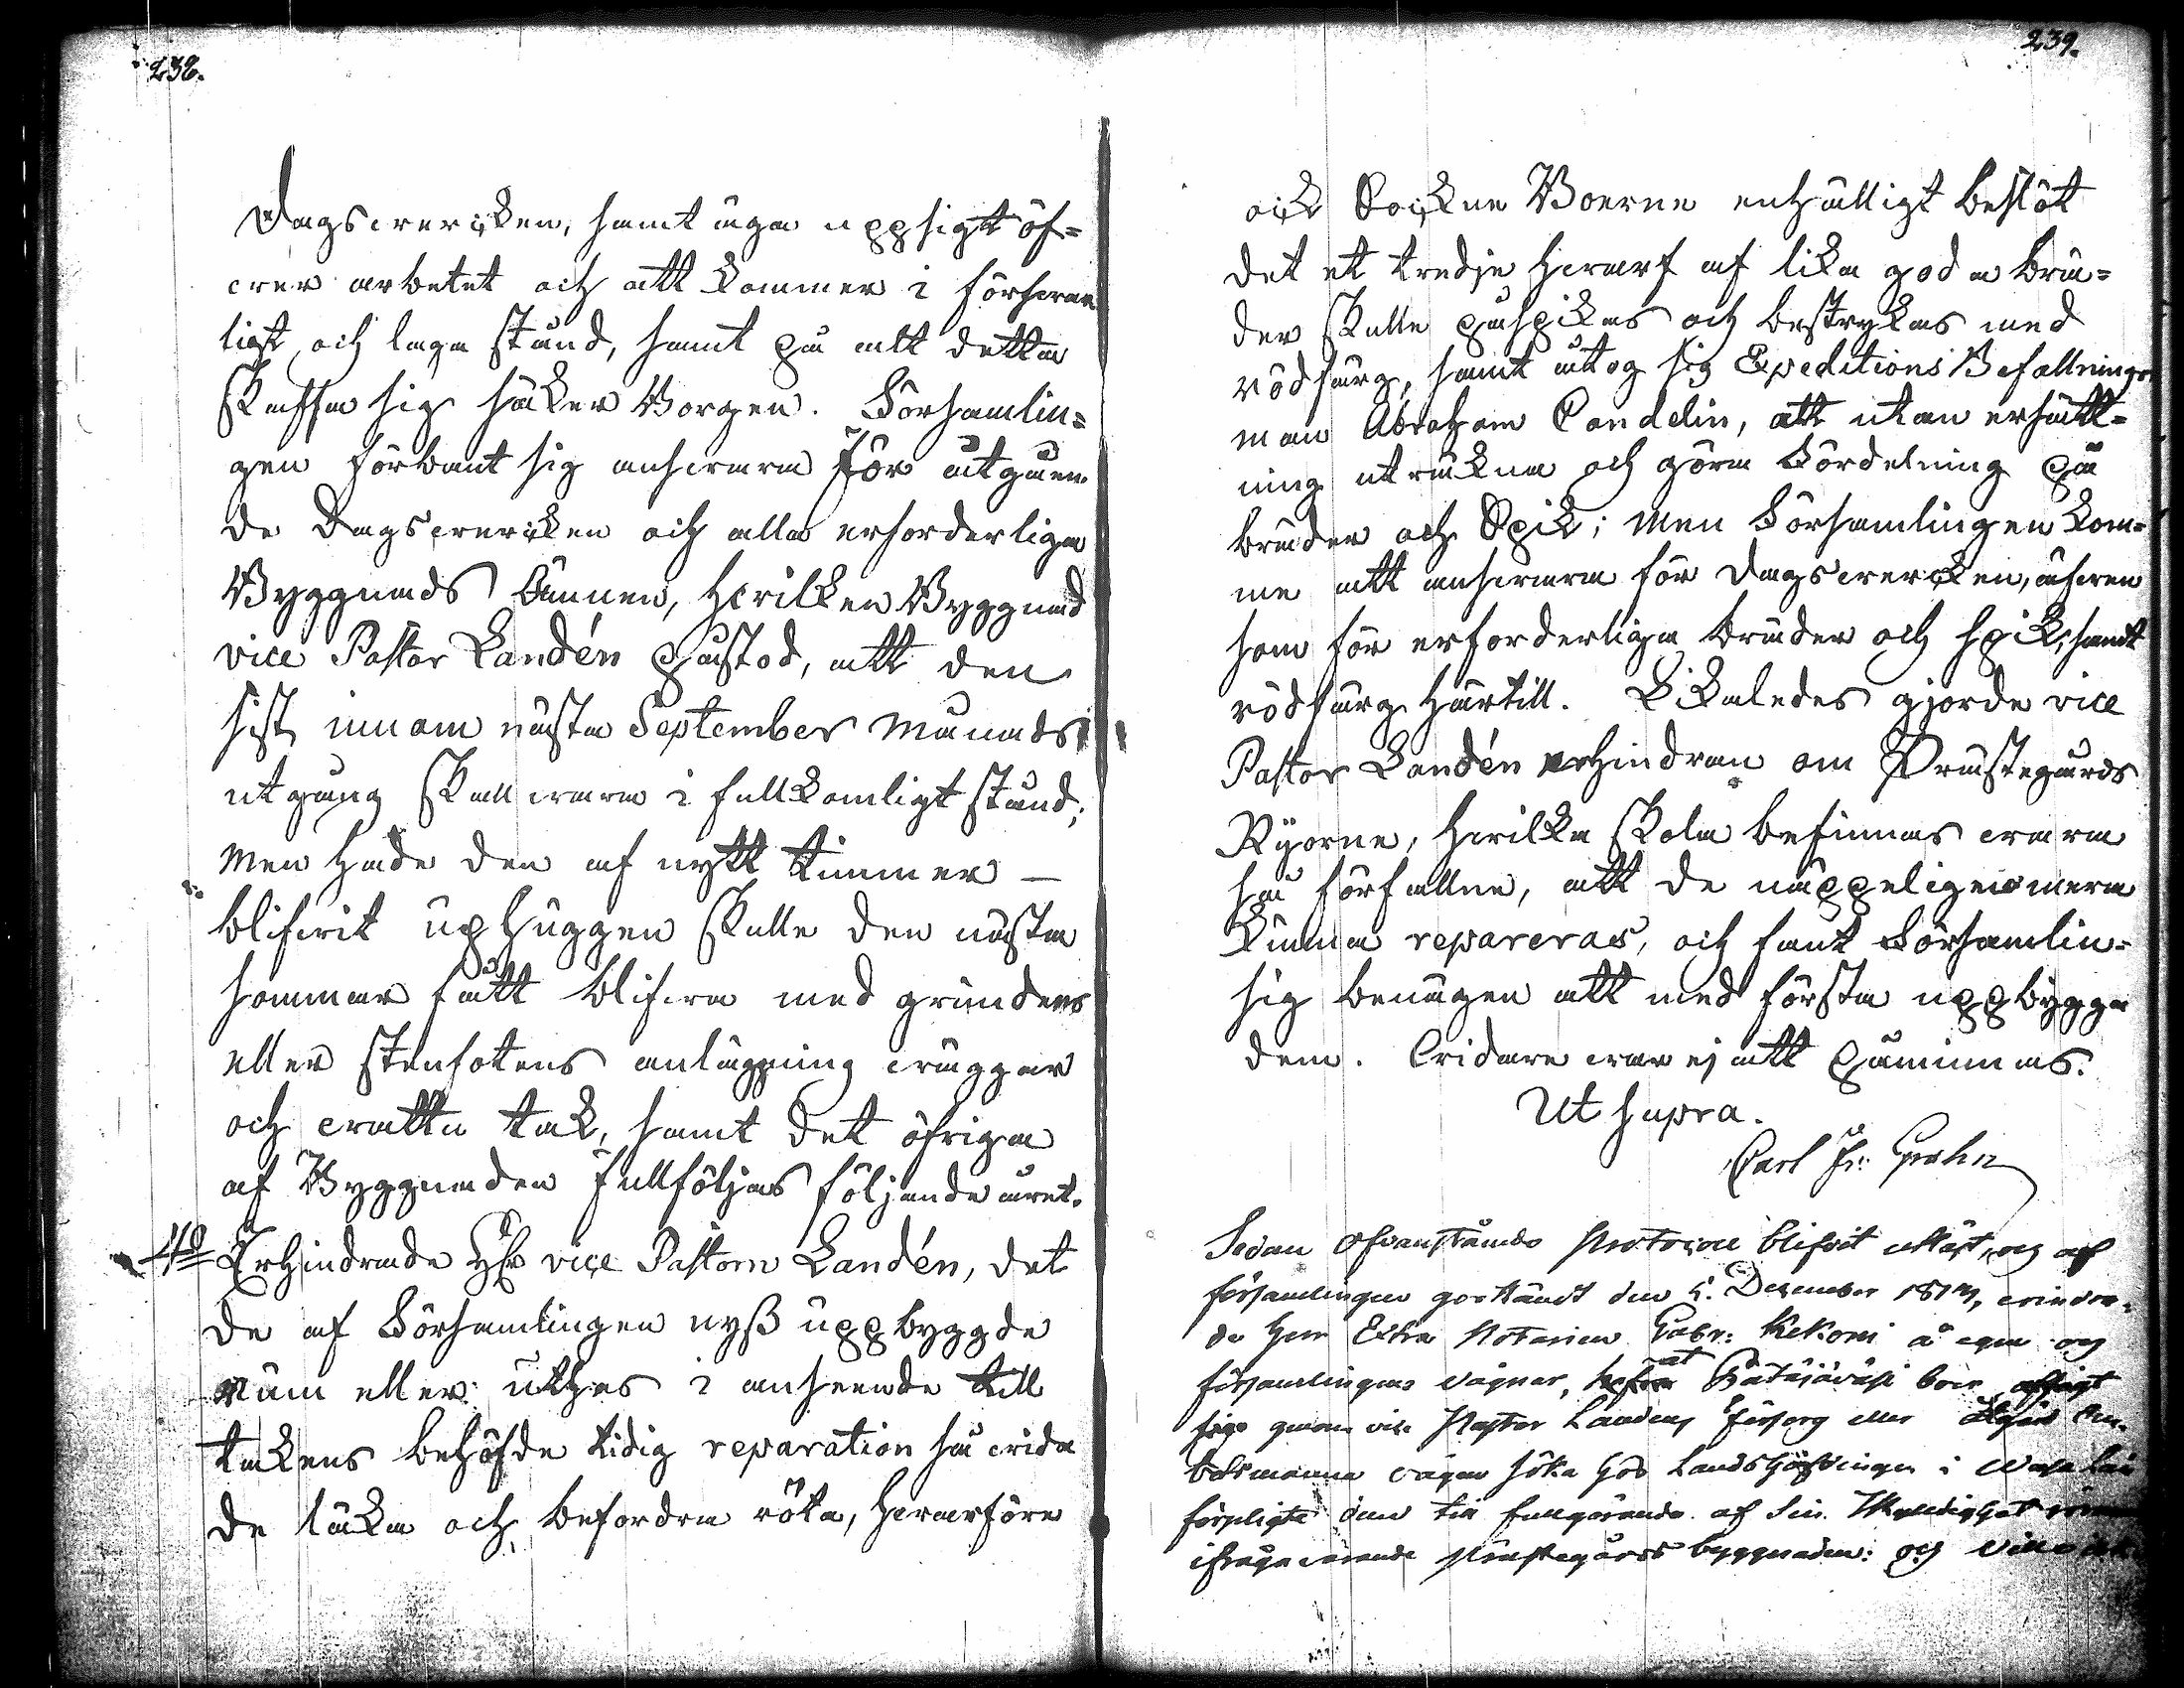 238.
Dagsvercken, samt äga uppsigt öf-
ver arbetet och att kommer i försvar
ligt och laga stånd, samt på allt detta
skaffa sig säker Borgen. Församlin-
gen förbant sig ansvara för utgåen
de Dagsvercken och alla erforderliga
Byggnads Ämnen, hvilken Byggnad
vice Pastor Landén påstod, att den
sist innom nästa September Månads
utgång skall vara i fullkomligt stånd;
Men hade den af nytt timmer —
blifvit uphuggen skulle den nästa
sommar fått blifva med grundens
eller stenfotens anläggning väggar
och vattu tak, samt det öfriga
af Byggnaden fullföljas följande året.
4o Erhindrade Hr vice Pastorn Landén, det
de af Församlingen nyß uppbyggde
Rum eller uthus i anseende till
takens behöfde tidig reparation så vida
de läka och befordra röta, hvarföre
239.
ock Sockne Boerne enhälligt beslöt
det et tredje hvarf af lika goda brä-
der skulle påspikas och bestrykas med
rödfärg, samt åtog sig Expeditions Befallnings
man Abraham Candelin, att utan ersätt-
ning uträkna och göra Fördelning på
bräder och Spik; Men Församlingen kom-
me att ansvara för Dagsvercken, äfven
som för erforderliga bräder och spik, samt
rödfärg härtill. Likaledes gjorde vice
Pastor Landén erhindran om Prästegårds
Ryorne, hvilka skola befinnas vara
så förfallne, att de näppeligen mera
kunna repareras, och fant Församlin-
sig benägen att med första uppbygga
dem. Vidare var ej att påminnas.
Ut supra.
Carl Fr: Grahn
Sedan ofvanstående Protocoll blifvit upläst, och af
församlingen godkändt den 4. December 1814, erindra-
de Herr Extra Notarien Gabr: Kekoni å egna och
församlingens vägnar, at Pätäjäväsi boer
genom vice Pastor Landens försorg eller
vägen söka hos Landshöfdingen i Wasa Län
förpligta dem till fullgörande af sin skuldighet
ifrågavarande Prästegårds byggnaden: och